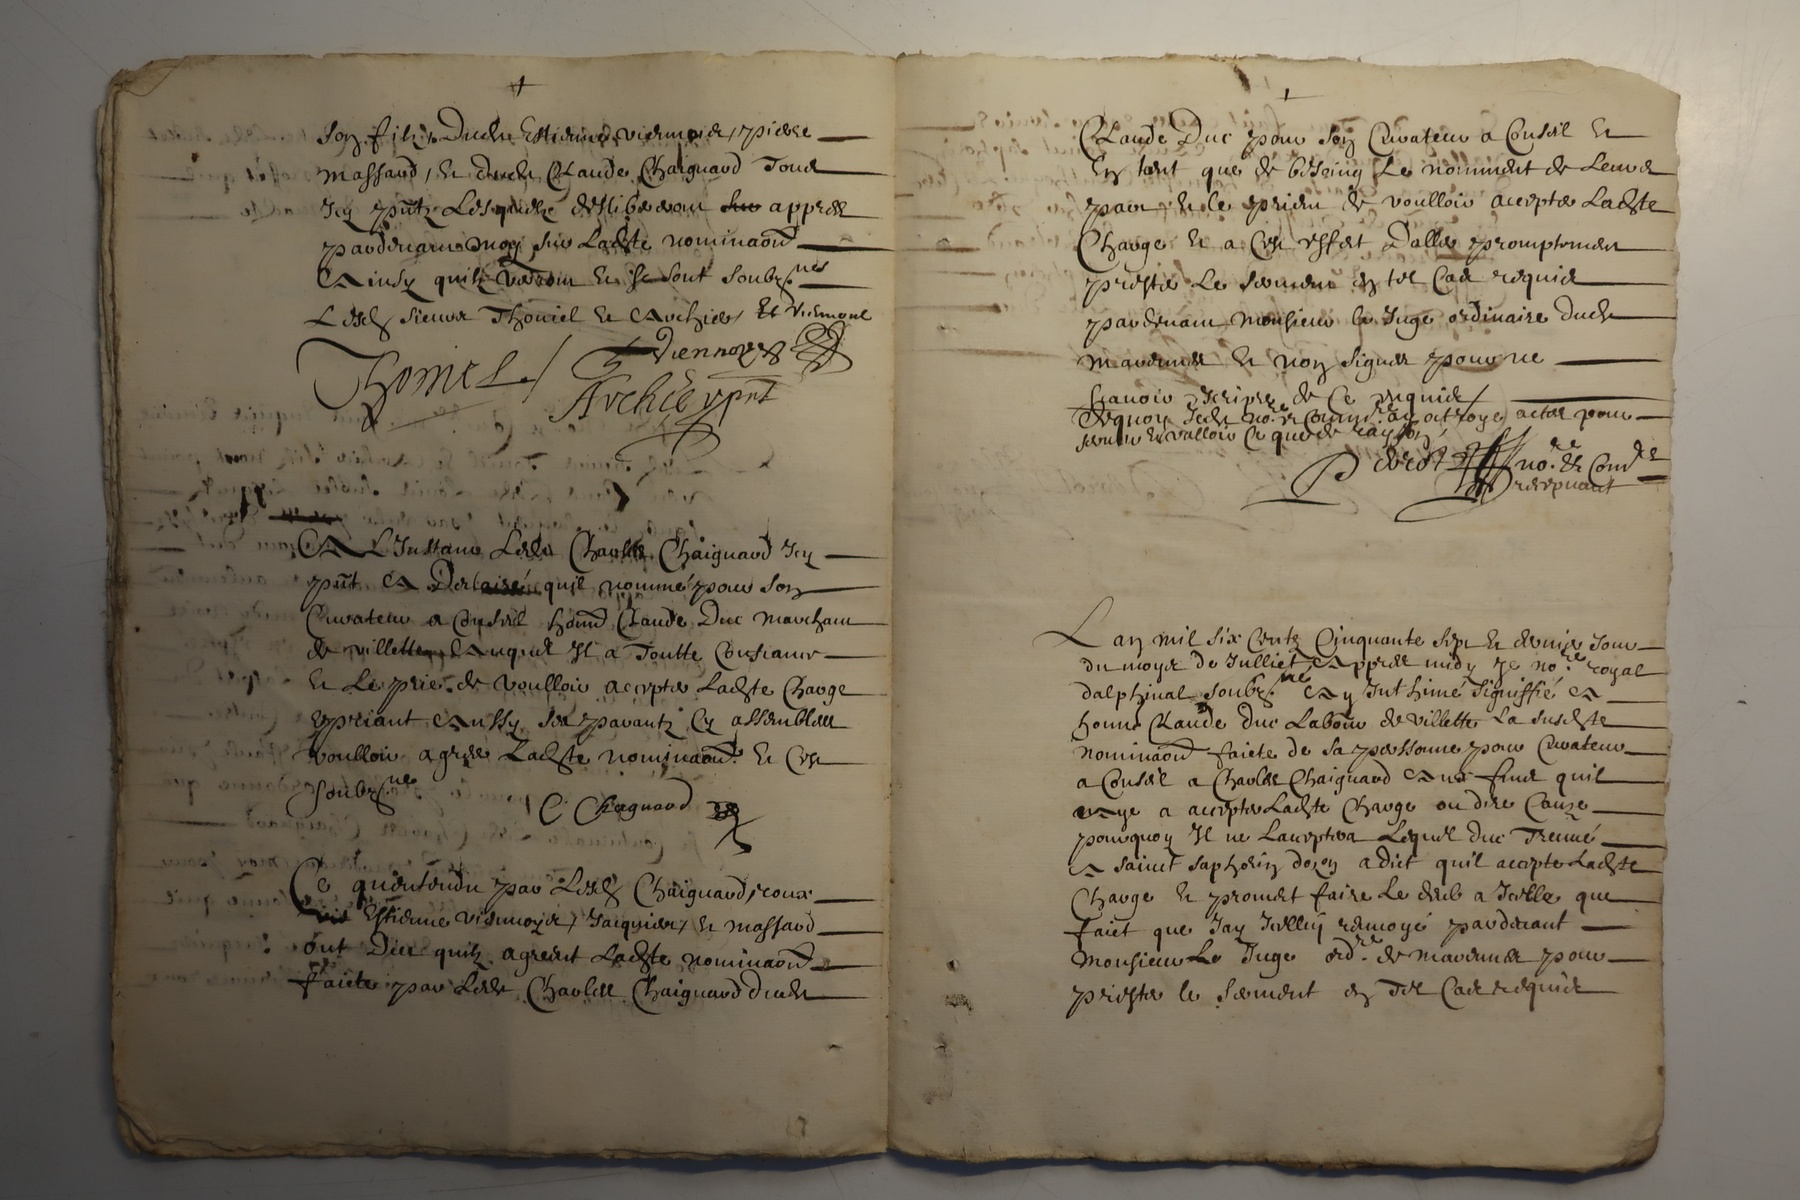 son filz, Dudit Estienne viennois, pierre
massard, et dudit Claude Chaignard Tous
Icy pntz Lesquelz deslibereront appres
pardevant moy sur Ladte nominaon
Ainsy quilz verront et se sont soubznes
Lesds sieurs Thomel et Archier, Et viennoys
Thomel / Viennoys
Archier pnt
A L'Instant Ledit Charles Chaignard Icy
pnt A Desclairé quil nomme pour son
Curateur a Conseil honn Claude Duc marchant
de villette Auquel Il a Toutte Confiance
et Le prie de voulloir accepter Ladte Charge
priant Aussy ses parantz Cy assembles
voulloir agreer Ladte nominaon et Cest
soubzne
C Chegnard
Ce quentendu par Lesds Chaignard,
Estienne viennoys, Jacquier, et massard
ont Dict quilz agreent Ladte nominaon
faicte par Ledit Charles Chaignard dudit
Claude Duc pour son Curateur a Conseil et
En tant que de besoing Le nomment de Leurs
part et le prient de voulloir accepter Ladte
Charge et a Cest effect Daller promptement
prester Le serment en tel Cas requis
pardevant Monsieur le Juge ordinaire dudit
mavennes et non signer pour ne
scavoir Escripre de Ce requis
Dequoy Je dit nore et Commre ay octroye actes pour
servir Et valloir Ce que de rayson
P nore et Commre
recepvant
L an mil six Centz Cinquante sept et dernier Jour
du moys de Julliet Appres midy Je nore royal
dalphinal soubzne Ay Inthimé Signiffié A
honn Claude duc Labour de villette La susdte
nominaon faicte de sa personne pour Curateur
a Conseil a Charles Chaignard Aux fins quil
aye a accepter Ladte Charge ou dire Cause
pourquoy Il ne Lacceptera Lequel duc Treuvé
A saint Saphorin dozon a dict quil accepte Ladte
Charge et promet faire Le deub a Icelle que
faict que Jay Icelluy renvoyé pardevant
Monsieur Le Juge ordre de mavennes pour
prester le serment en Tel Cas requis